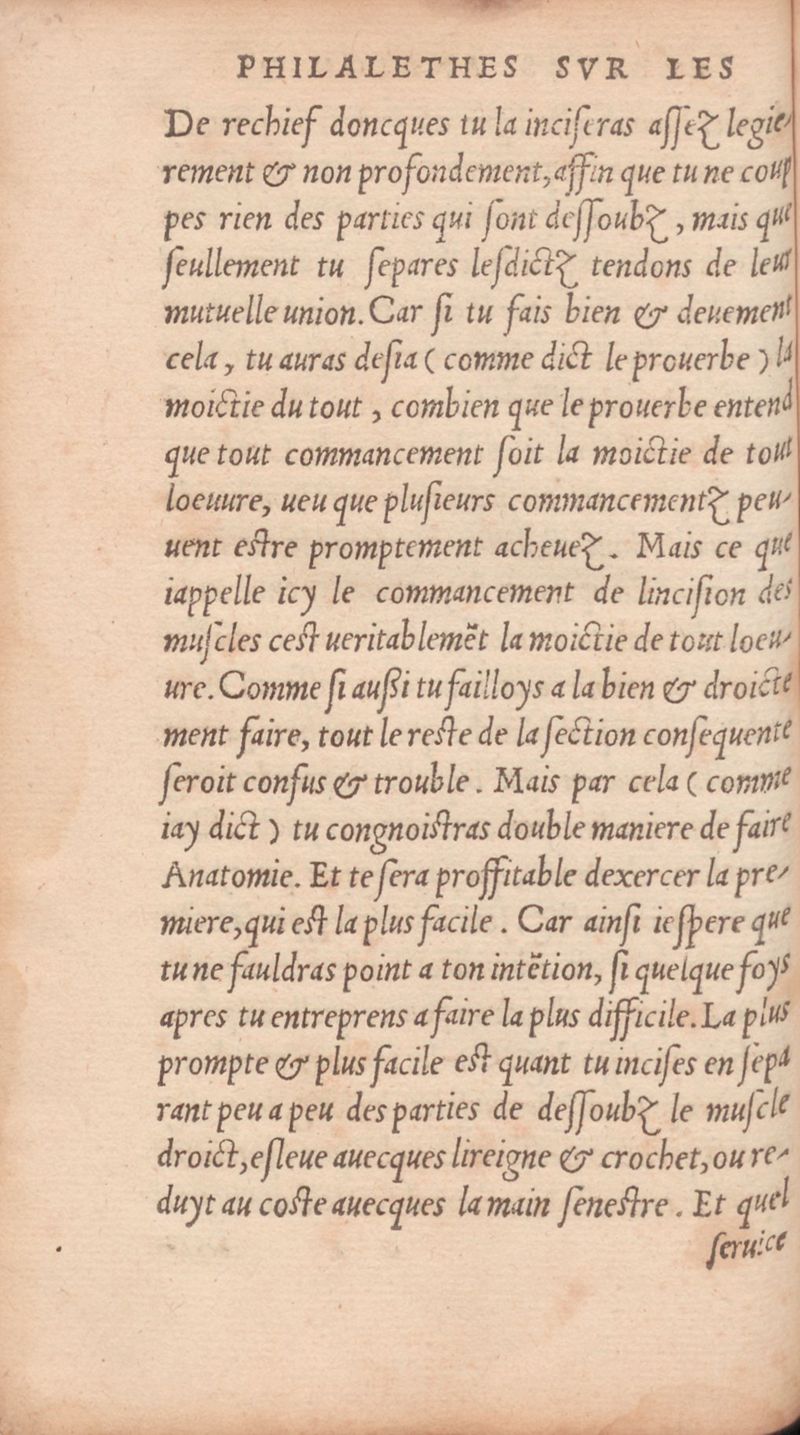 PHILALETHES SVR LES
De rechief doncques tu la inciſeras aſſez legie/
rement & non profondement,affin que tu ne coup
pes rien des parties qui ſont deſſoubz , mais que
ſeullement tu ſepares leſdictz tendons de leur
mutuelle union. Car ſi tu fais bien & deuement
cela , tu auras deſia ( comme dict le prouerbe ) la
moictie du tout , combien que le prouerbe entend
que tout commancement ſoit la moictie de tout
loeuure, ueu que pluſieurs commancementz peu/
uent eſtre promptement acheuez. Mais ce que
iappelle icy le commancement de linciſion des
muſcles ceſt ueritablemēt la moictie de tout loeu/
ure. Comme ſi auſſi tu failloys a la bien & droicte
ment faire, tout le reſte de la ſection conſequente
ſeroit confus & trouble . Mais par cela ( comme
iay dict ) tu congnoiſtras double maniere de faire
Anatomie. Et te ſera proffitable dexercer la pre/
miere,qui eſt la plus facile . Car ainſi ieſpere que
tu ne fauldras point a ton intētion, ſi quelque foys
apres tu entreprens a faire la plus difficile. La plus
prompte & plus facile eſt quant tu inciſes en ſepa
rant peu a peu des parties de deſſoubz le muſcle
droict,eſleue auecques lireigne & crochet,ou re/
duyt au coſte auecques la main ſeneſtre . Et quel
ſeruice